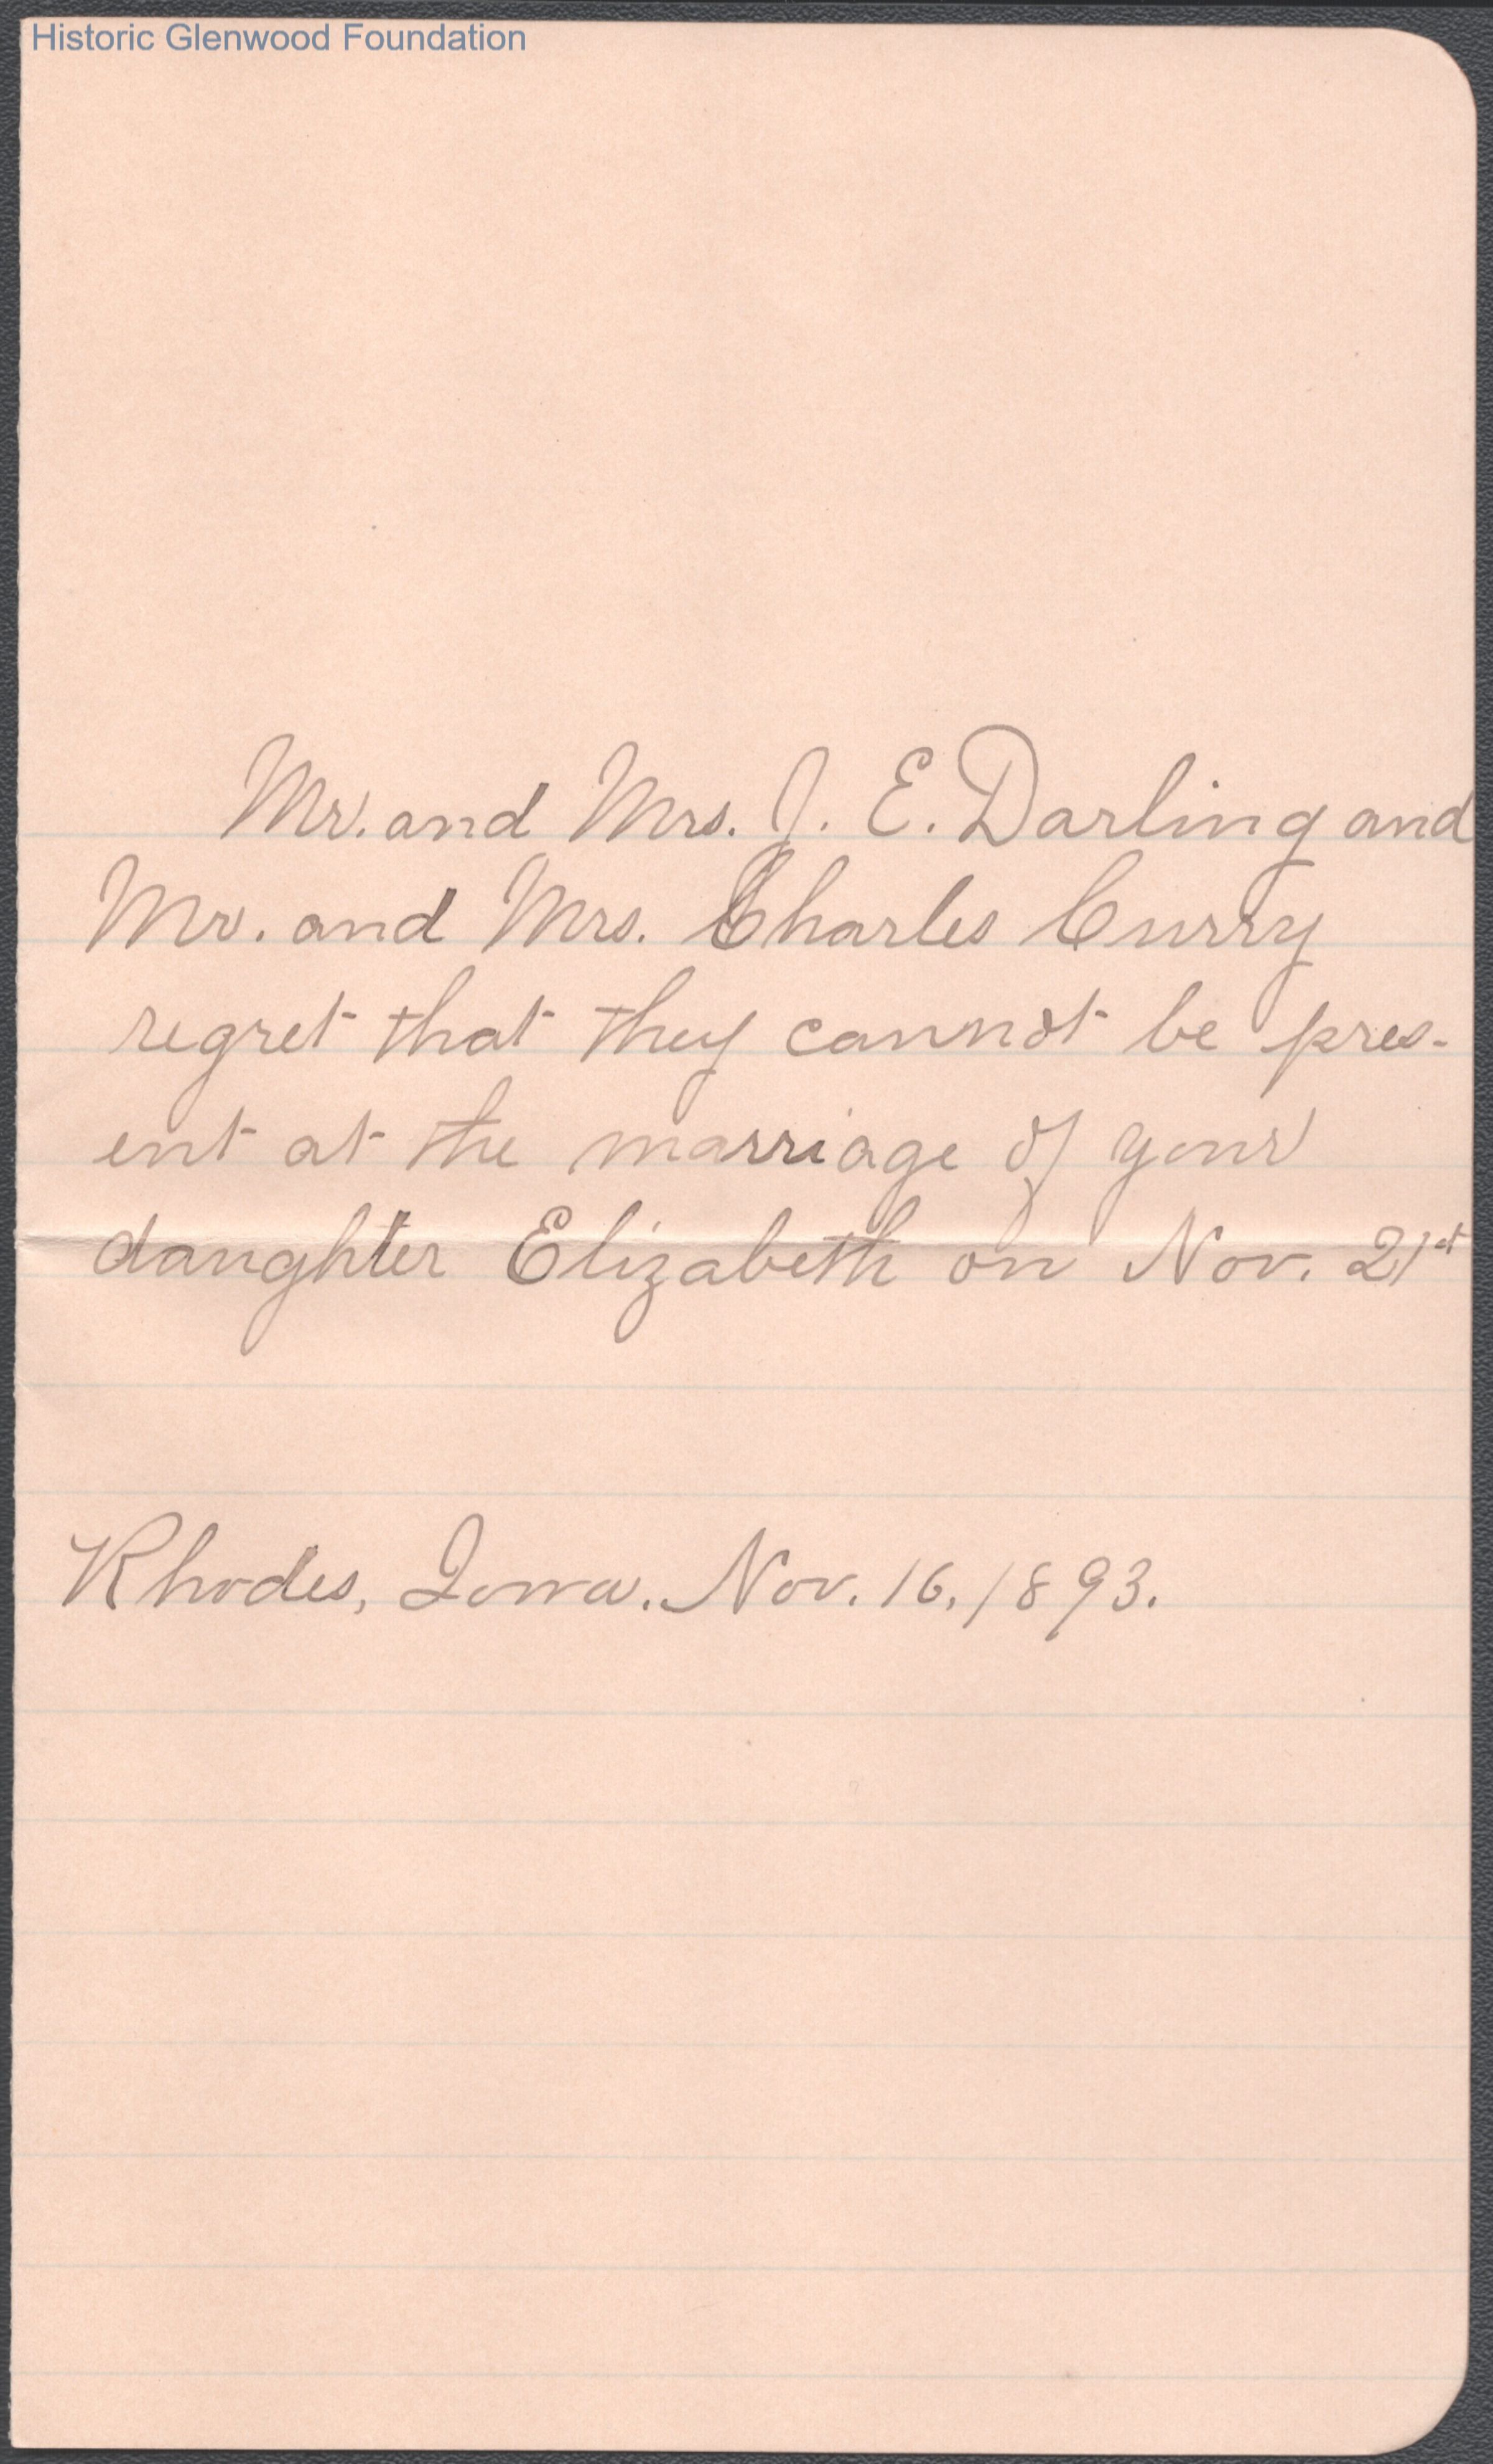 Historic Glenwood Foundation
Mr. and Mrs. J. E. Darling and
Mr. and Mrs. Charles Curry
regret that they cannot be pres-
ent at the marriage of your
daughter Elizabeth on Nov. 21st
Rhodes, Iowa. Nov. 16, 1893.